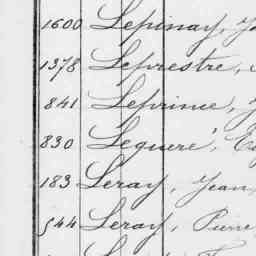 1600 Lepinay,
1378 Leprestre,
841 Leprince,
830 Lequeré,
183 Leray, Jean
544 Leray, Pierre